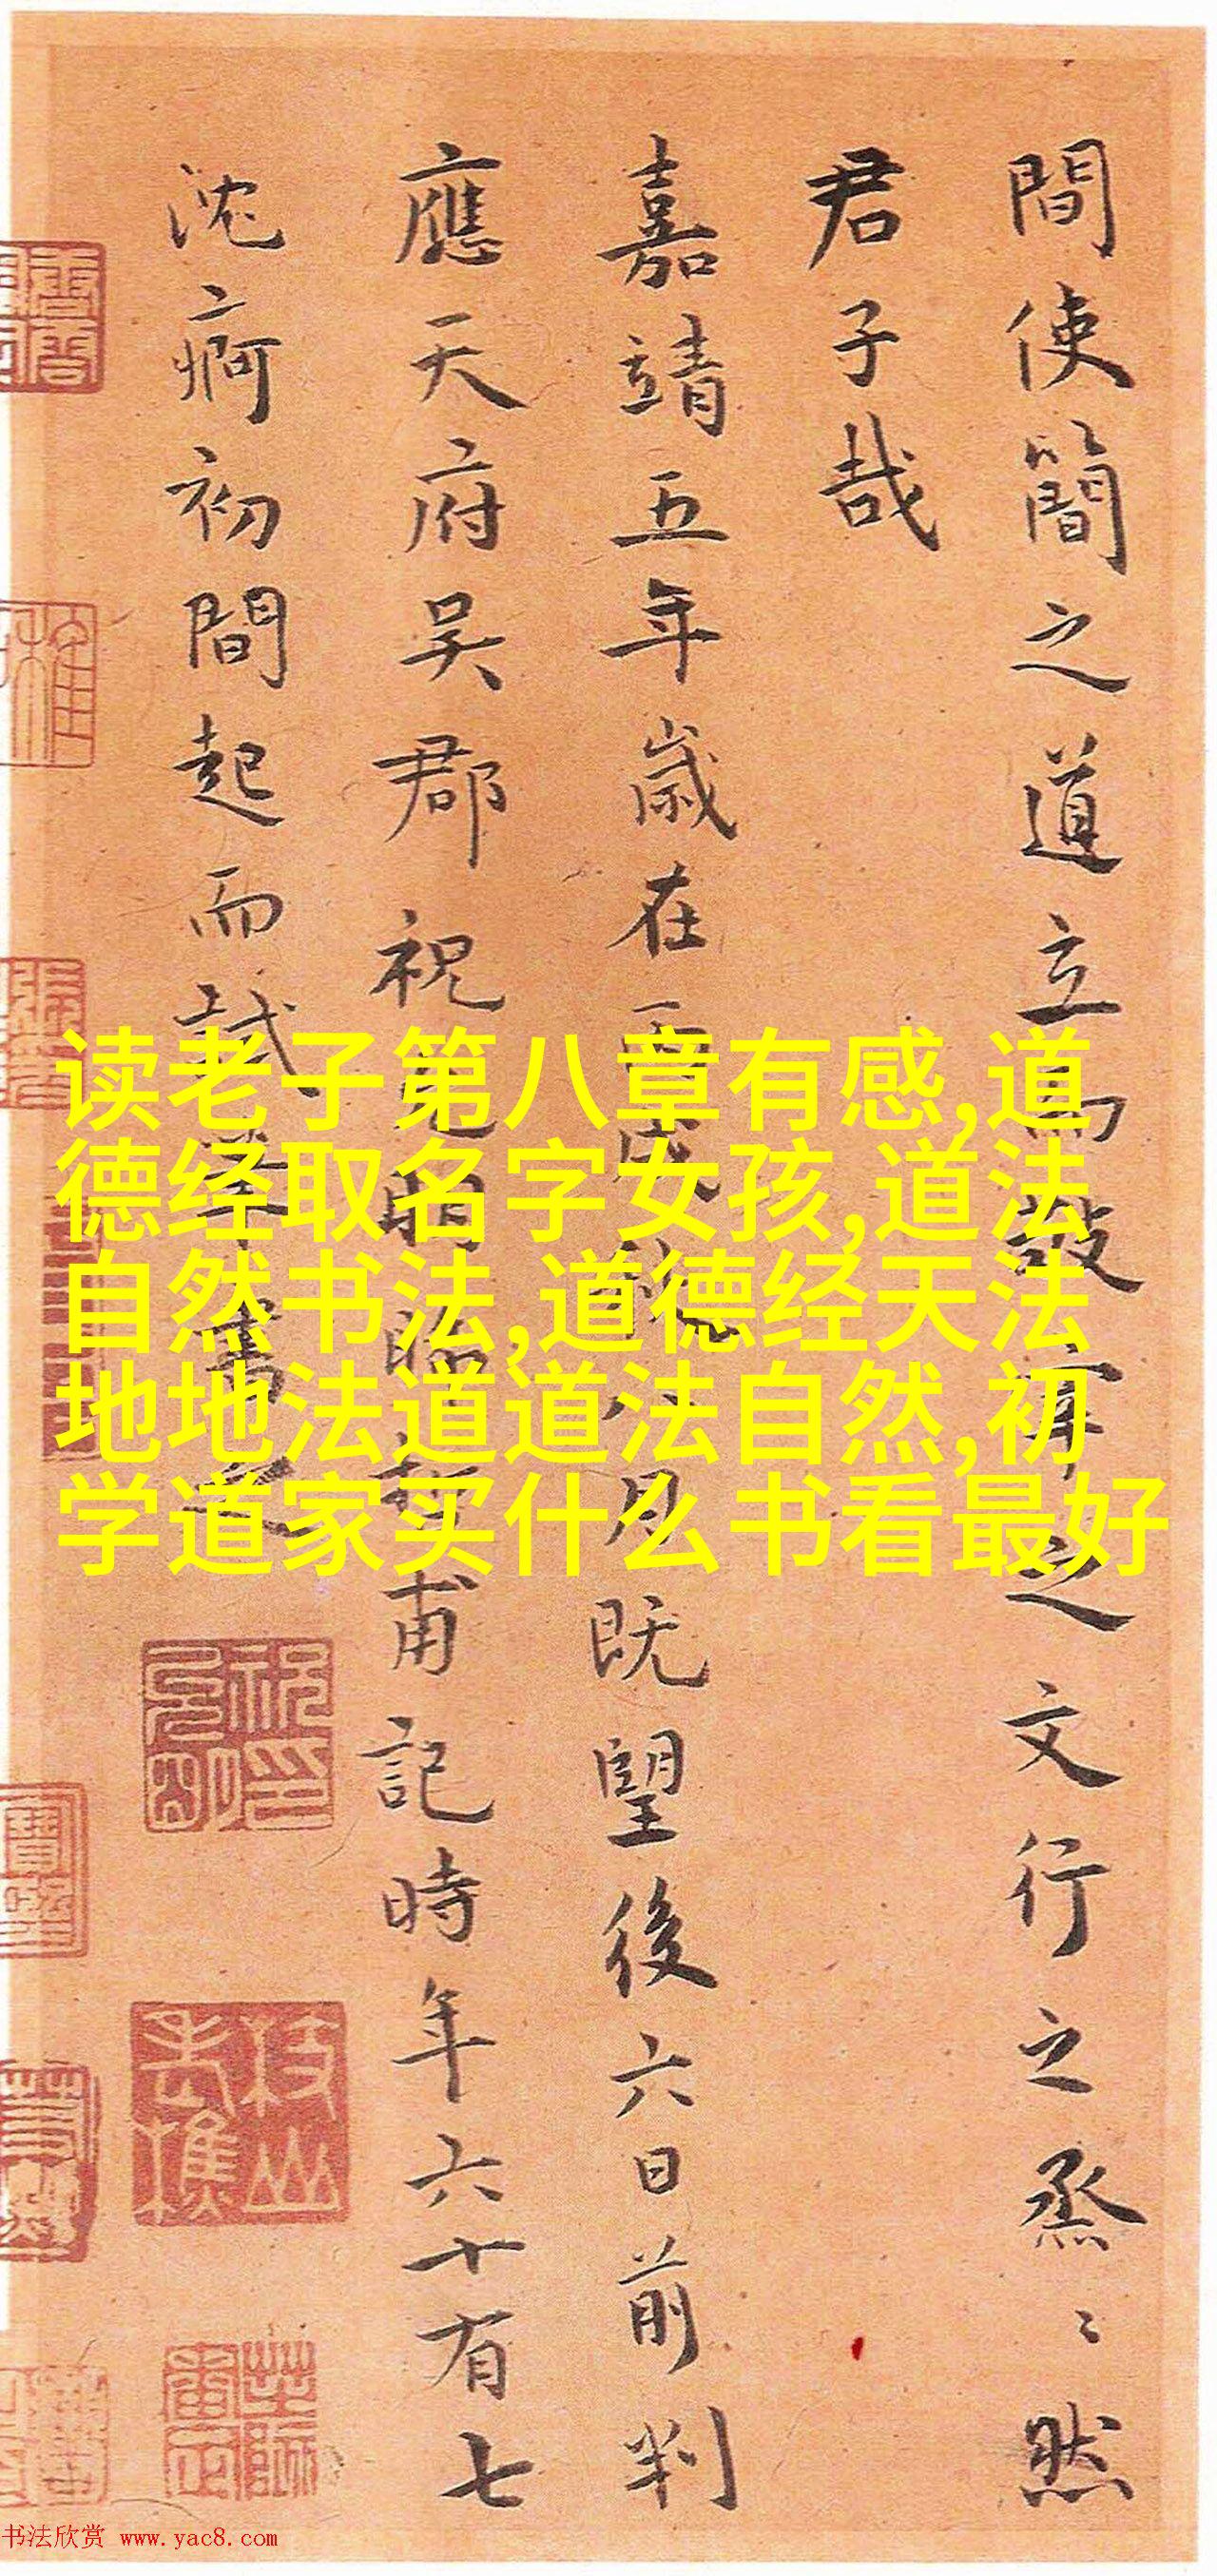 間使簡之道立焉敼寜之文行之烝〻然
君子哉
嘉靖五年歲在丙戌秋八月既望後六日前判
應天府吴郡祝允明晞哲甫記時年六十有七
沈痾初間起而試筆書之
读老子第八章有感,道
德经取名字女孩,道法
自然书法,道德经天法
地地法道道法自然,初
学道家买什么书看最好
书法欣赏 www.yac8.com